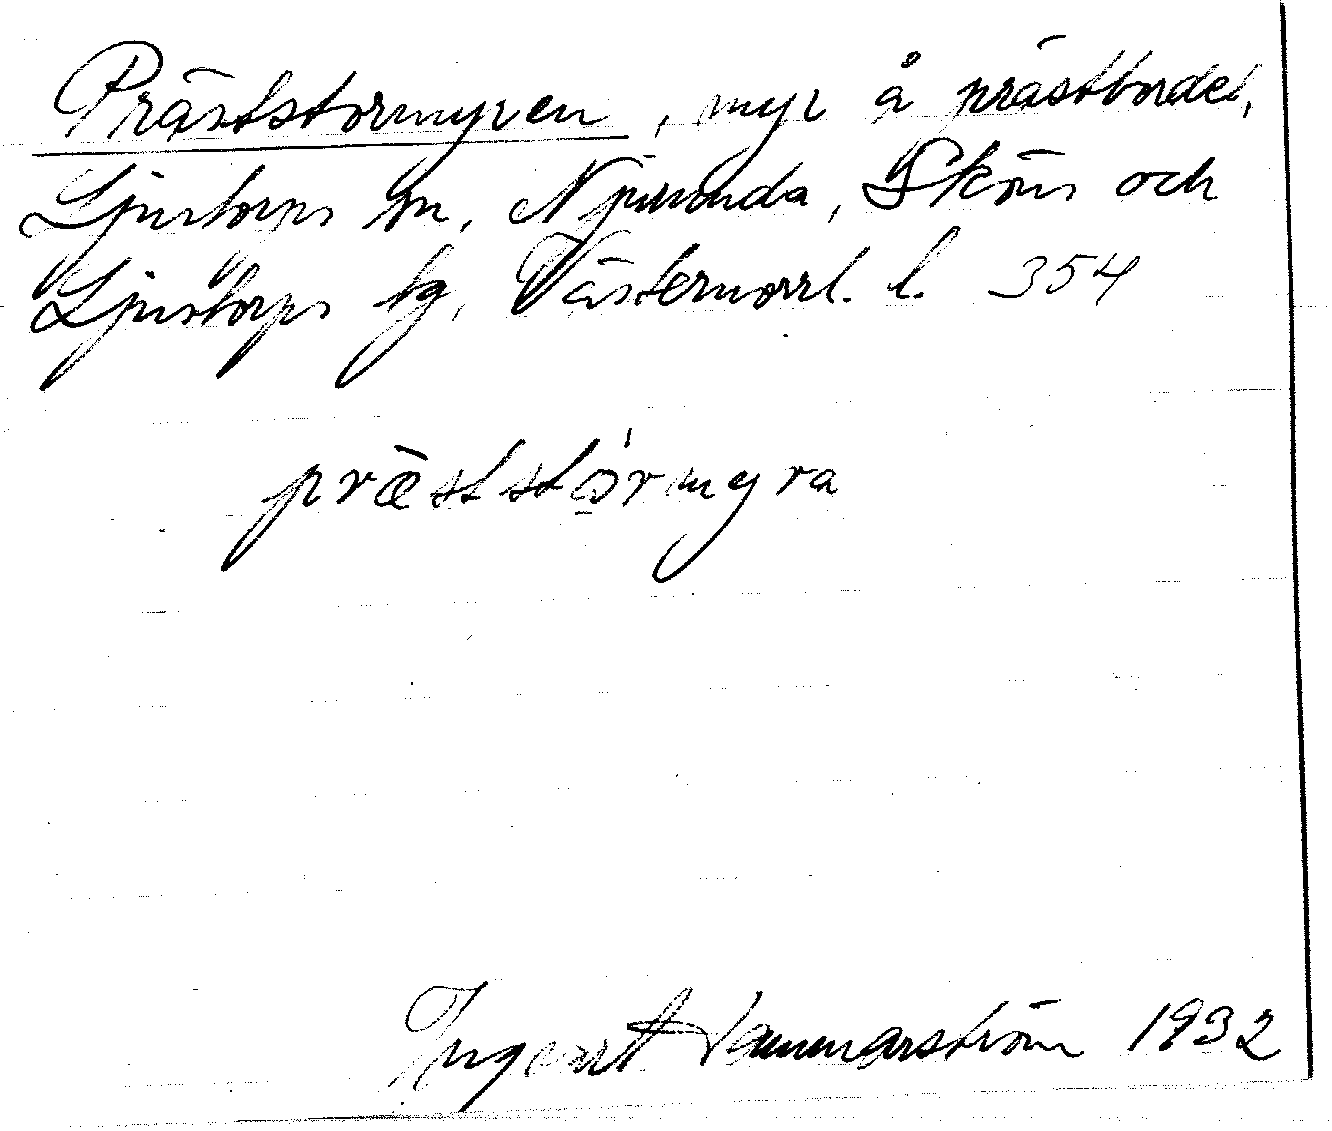 Präststormyren, myr å prästbordet,
Ljustorps sn, Njurunda, Sköns och
Ljustorps tg, Västernorrl. l. 354
prä̀ststǫ́rmyra
Ingvart Hammarström 1932